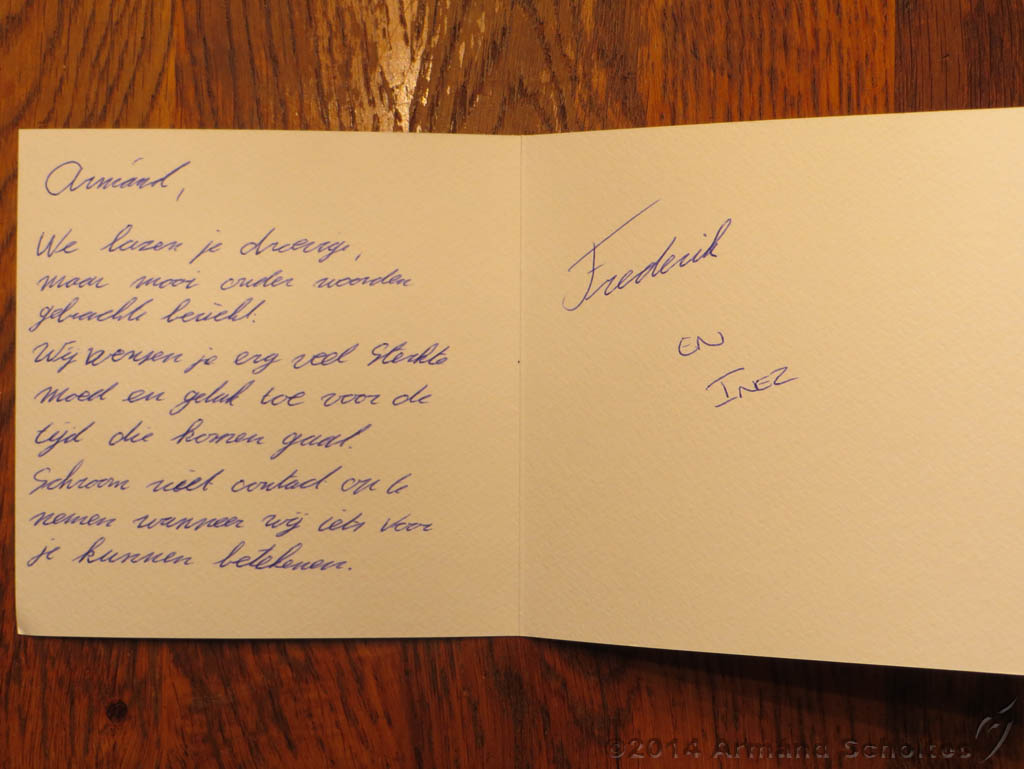 Armand,
We lazen je droevige,
maar mooi onder woorden
gebrachte bericht.
Wij wensen je erg veel Sterkte
moed en geluk toe voor de
tijd die komen gaat.
Schroom niet contact op te
nemen wanneer wij iets voor
je kunnen betekenen.
Frederik
EN
INEZ
©2014 Armand Scholtes